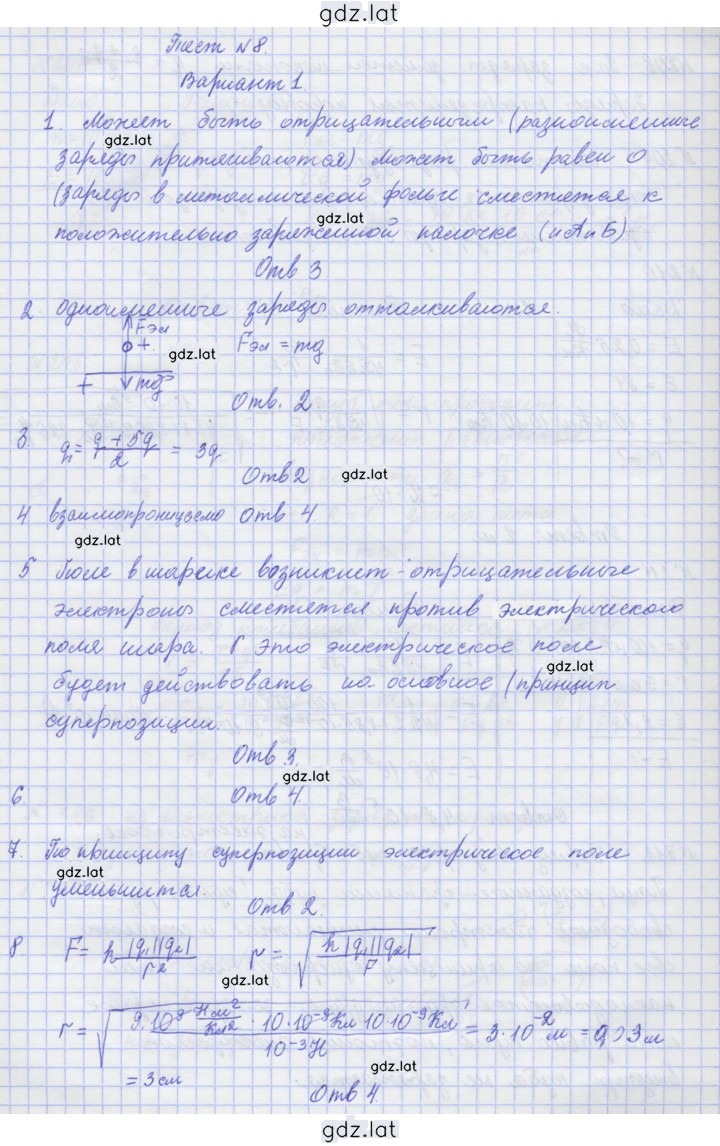 gdz.lat
Тест №8.
Вариант 1
1. Может быть отрицательным (разноименные
gdz.lat
заряды притягиваются) Может быть равен 0
(заряды в металлической фольге сместятся к
gdz.lat
положительно заряженной палочке (и А и Б)
Отв 3.
2 Одноименные заряды отталкиваются.
Fэл
+
gdz.lat
Fэл = mg
+
mg
Отв. 2
3. q₁ = (q + 5q)/2 = 3q
Отв 2
gdz.lat
4 взаимопроницаемо Отв 4.
gdz.lat
5 Поле в шарике возникнет - отрицательные
электроны сместятся против электрического
поля шара. Это электрическое поле
gdz.lat
будет действовать на основное (принцип
суперпозиции.
Отв 3.
gdz.lat
6. Отв 4.
7. По принципу суперпозиции электрическое поле
gdz.lat
уменьшится.
Отв 2.
8. F = k |q₁||q₂| / r² r = √(k |q₁||q₂| / F)
gdz.lat
r = √(9·10⁹ Нм²/Кл² · 10·10⁻⁹Кл 10·10⁻⁹Кл / 10⁻³Н) = 3·10⁻²м = 0,03м
= 3см
gdz.lat
Отв 4.
gdz.lat